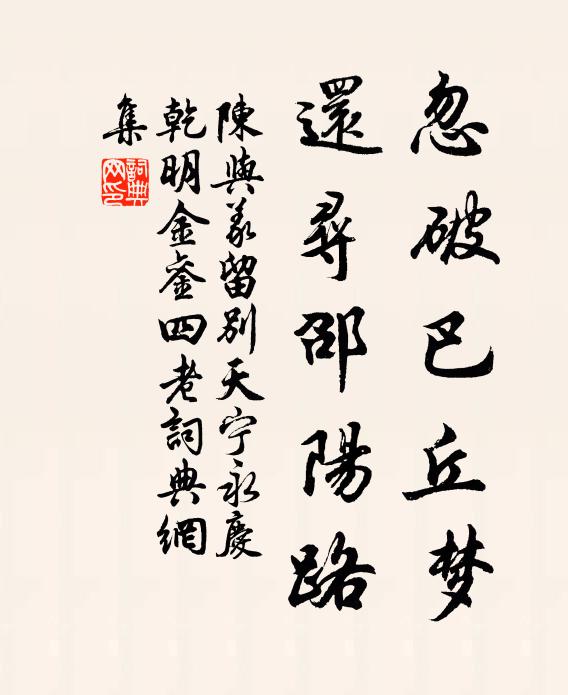 忽破巴丘梦
還尋邵陽路
陳與義留别天宁永慶
乾明金銮四老詞典網
集
詞典
网印